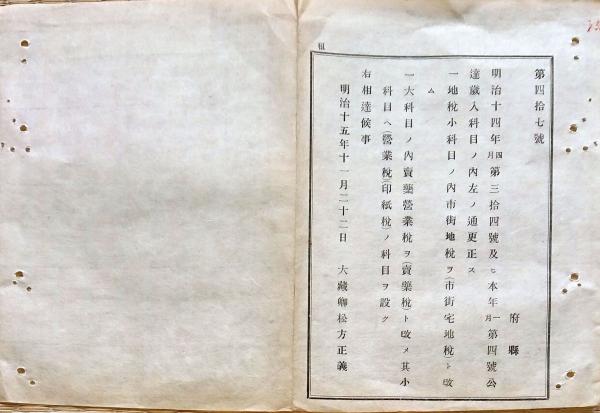 租
第四拾七號
府縣
明治十四年四月第三拾四號及ヒ本年一月第四號公
達歲入科目ノ內左ノ通更正ス
一地稅小科目ノ內市街地稅ヲ(市街宅地稅)ト改
ム
一大科目ノ內賣藥營業稅ヲ(賣藥稅)ト改メ其小
科目ヘ(營業稅)(印紙稅)ノ科目ヲ設ク
右相達候事
明治十五年十一月二十二日 大藏卿松方正義